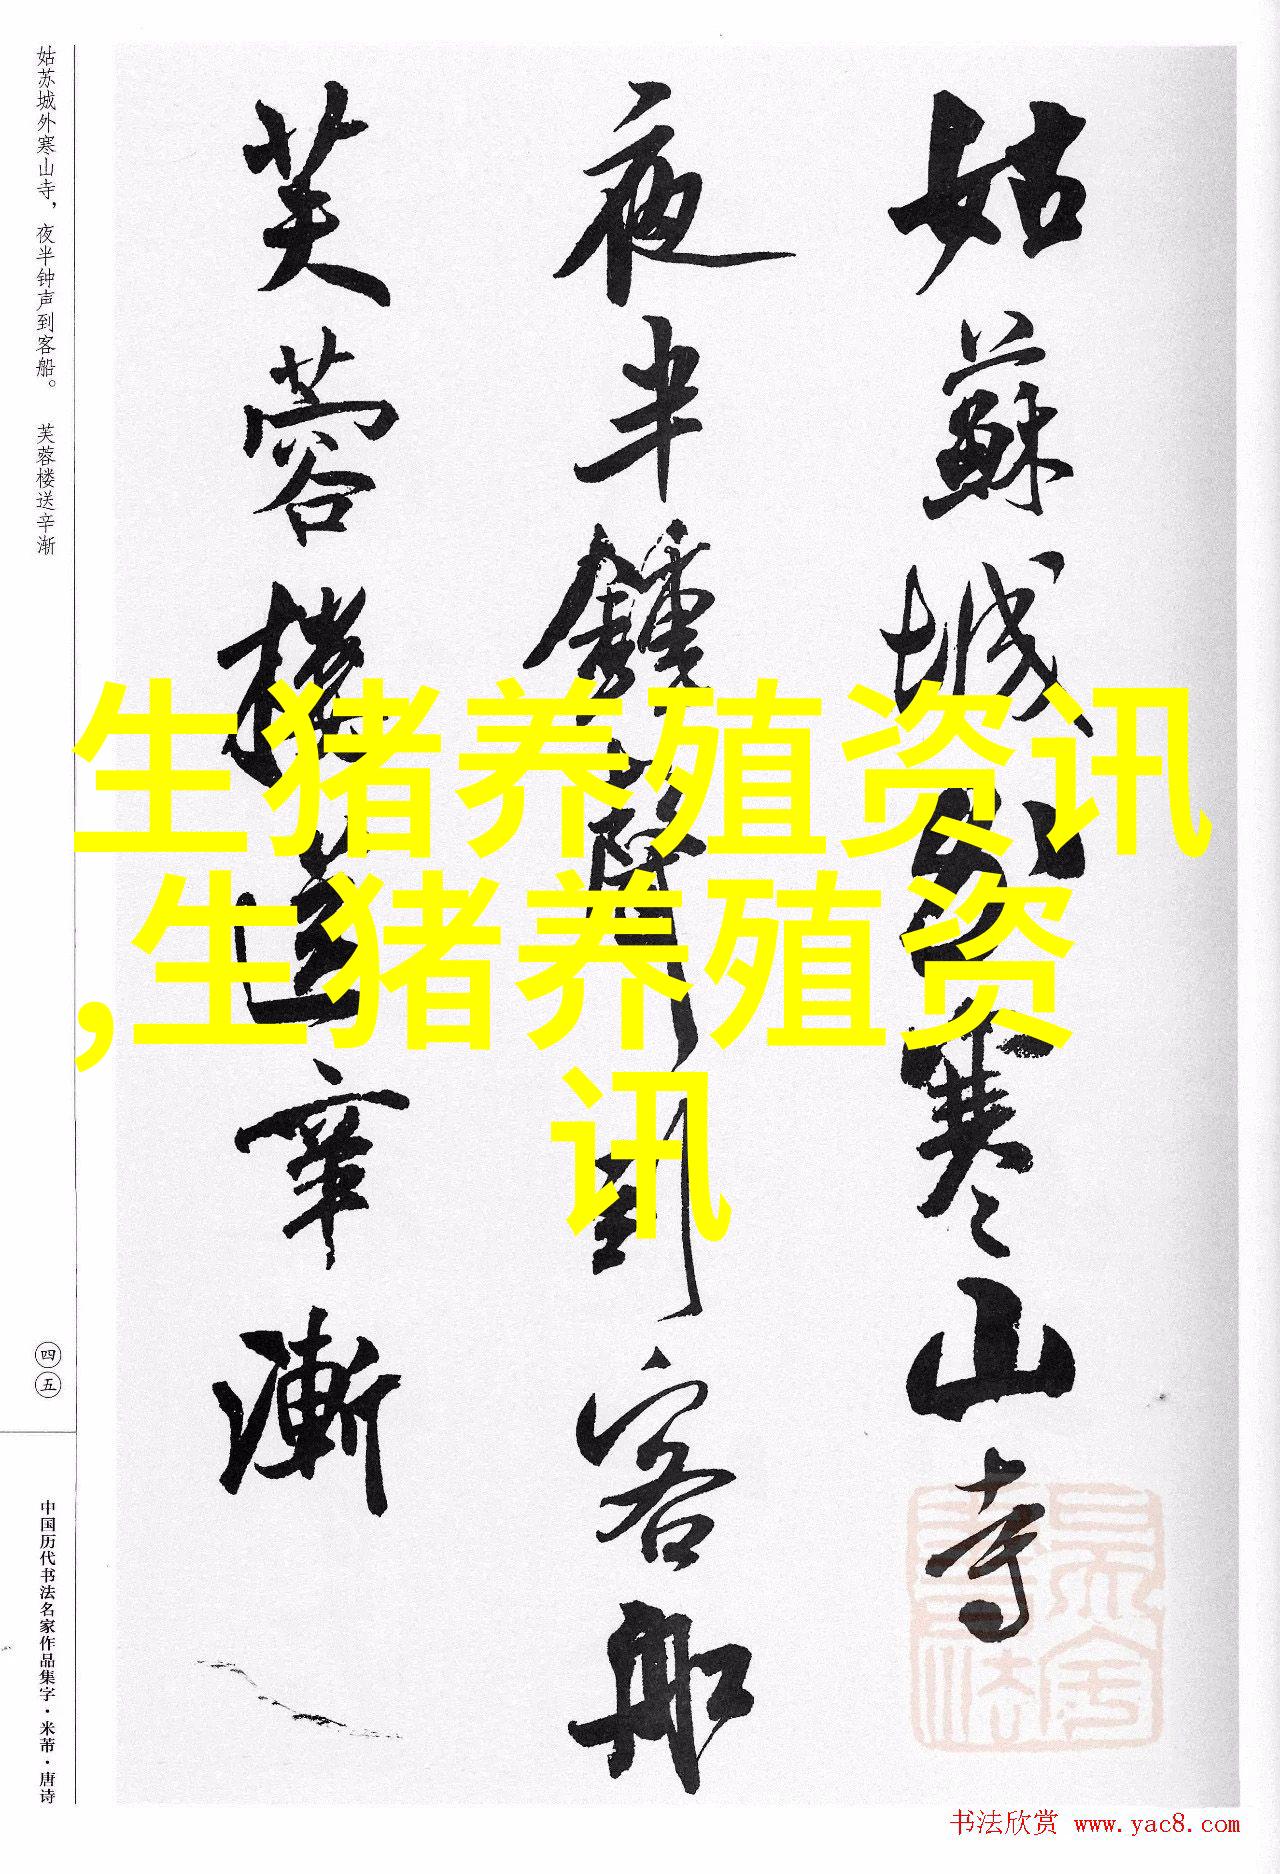 姑蘇城外寒山寺
夜半鍾聲到客船
芙蓉樓送辛漸
姑苏城外寒山寺，夜半钟声到客船。　芙蓉楼送辛渐
四五
中国历代书法名家作品集字·米芾·唐诗
生猪养殖资讯
,生猪养殖资
讯
书法欣赏 www.yac8.com